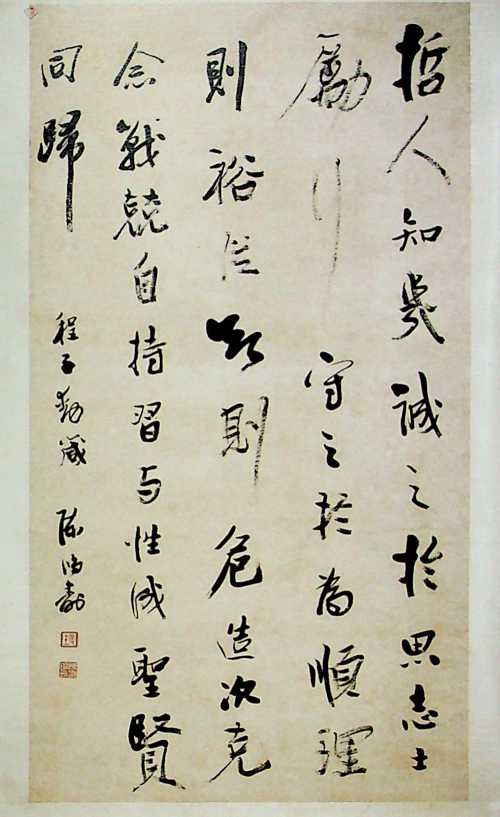 哲人知幾誠之於思志士
勵行守之於為順理
則裕從欲則危造次克
念戰兢自持習与性成聖賢
同歸
程子動箴 陳鴻壽